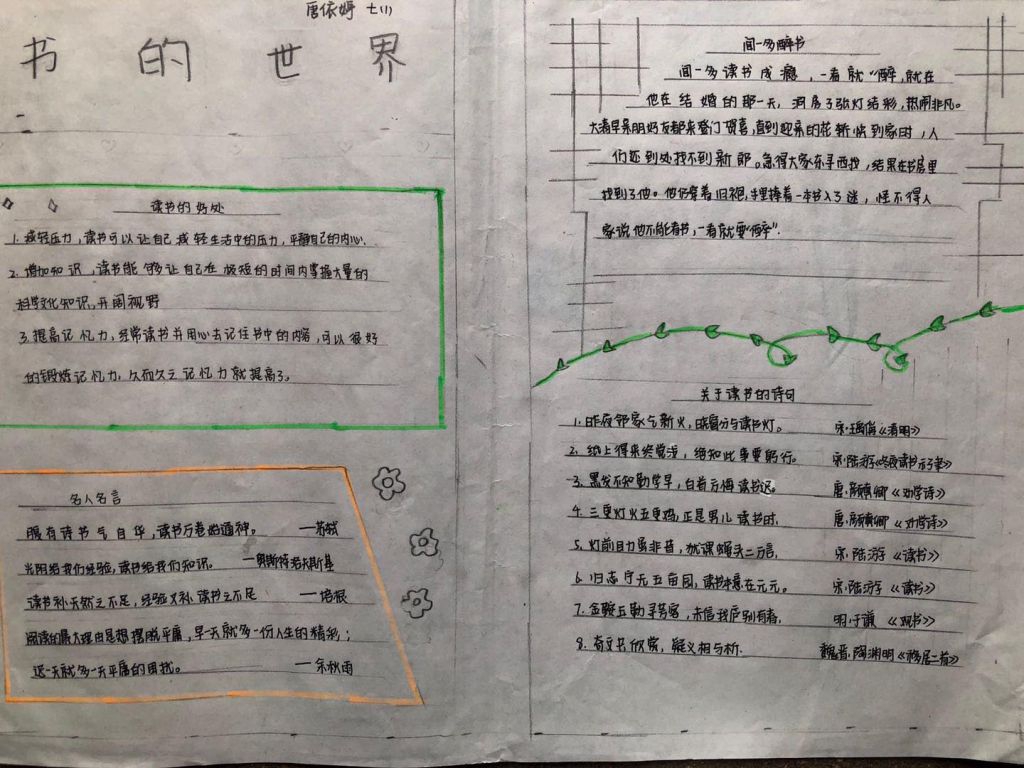 唐依婷 七(1)
书的世界
读书的好处
1.减轻压力,读书可以让自己减轻生活中的压力,平静自己的内心.
2.增加知识,读书能够让自己在极短的时间内掌握大量的
科学文化知识,开阔视野
3.提高记忆力,经常读书并用心去记住书中的内容,可以很好
的锻炼记忆力,久而久之记忆力就提高了。
名人名言
腹有诗书气自华,读书万卷始通神。 ——苏轼
光阴给我们经验,读书给我们知识。 ——奥斯特洛夫斯基
读书补天然之不足,经验又补读书之不足 ——培根
阅读的最大理由是想摆脱平庸,早一天就多一份人生的精彩;
迟一天就多一天平庸的困扰。 ——余秋雨
闻一多醉书
闻一多读书成瘾,一看就"醉,就在
他在结婚的那一天,洞房了张灯结彩,热闹非凡。
大清早亲朋好友都来登门贺喜,直到迎亲的花轿快到家时,人
们还到处找不到新郎。急得大家东寻西找,结果在书房里
找到了他。他仍穿着旧袍,手里捧着一本书入了迷,怪不得人
家说他不能看书,一看就要"醉".
关于读书的诗句
1.昨夜邻家乞新火,晓窗分与读书灯。 宋·王禹偁《清明》
2.纸上得来终觉浅,绝知此事要躬行。 宋·陆游《冬夜读书示子聿》
3.黑发不知勤学早,白首方悔读书迟。 唐·颜真卿《劝学诗》
4.三更灯火五更鸡,正是男儿读书时. 唐·颜真卿《劝学诗》
5.灯前目力虽非昔,犹课蝇头二万言. 宋·陆游《读书》
6.归志宁无五亩园,读书本意在元元。 宋·陆游《读书》
7.金鞍玉勒寻芳客,未信我庐别有春, 明·于谦《观书》
8.奇文书欣赏,疑义相与析. 魏晋·陶渊明《移居二首》